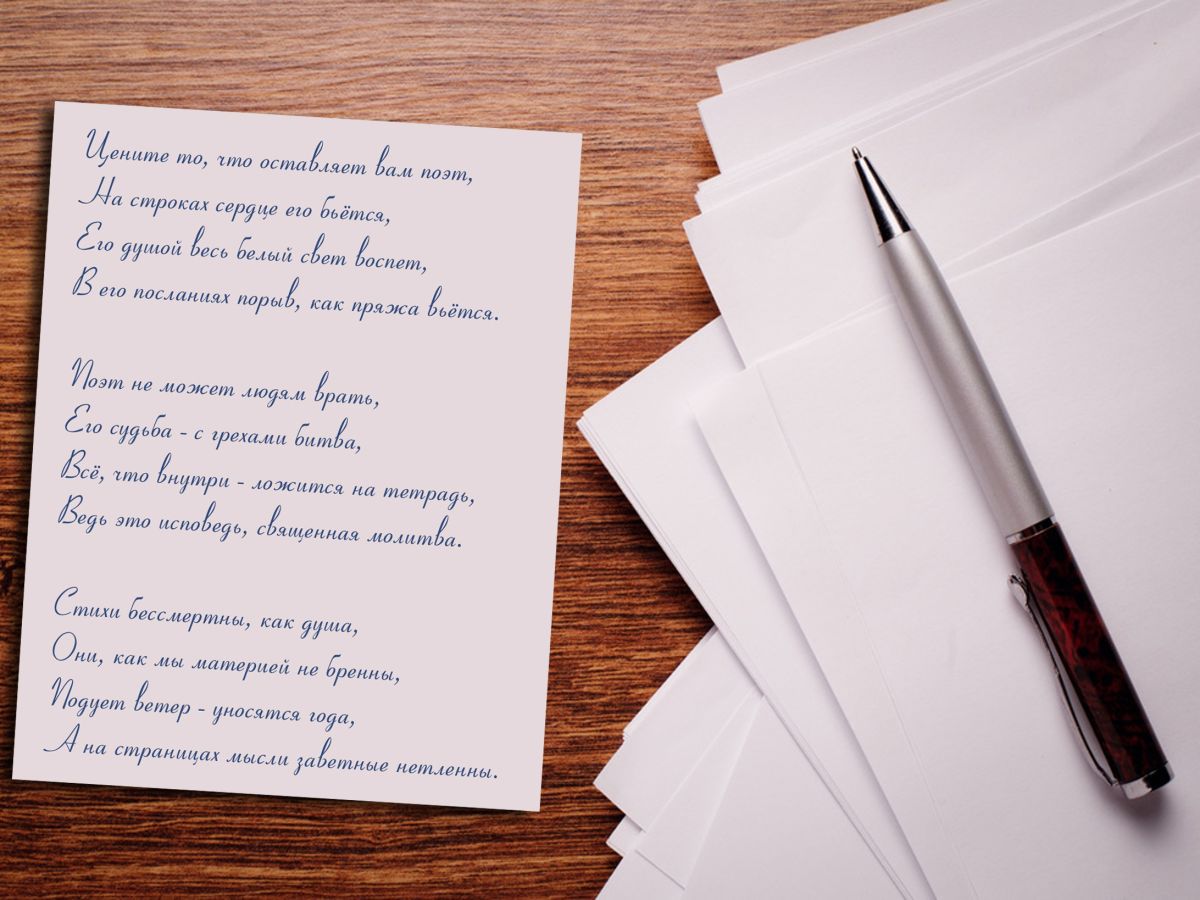 Цените то, что оставляет вам поэт,
На строках сердце его бьётся,
Его душой весь белый свет воспет,
В его посланиях порыв, как пряжа вьётся.
Поэт не может людям врать,
Его судьба - с грехами битва,
Всё, что внутри - ложится на тетрадь,
Ведь это исповедь, священная молитва.
Стихи бессмертны, как душа,
Они, как мы материей не бренны,
Подует ветер - уносятся года,
А на страницах мысли заветные нетленны.